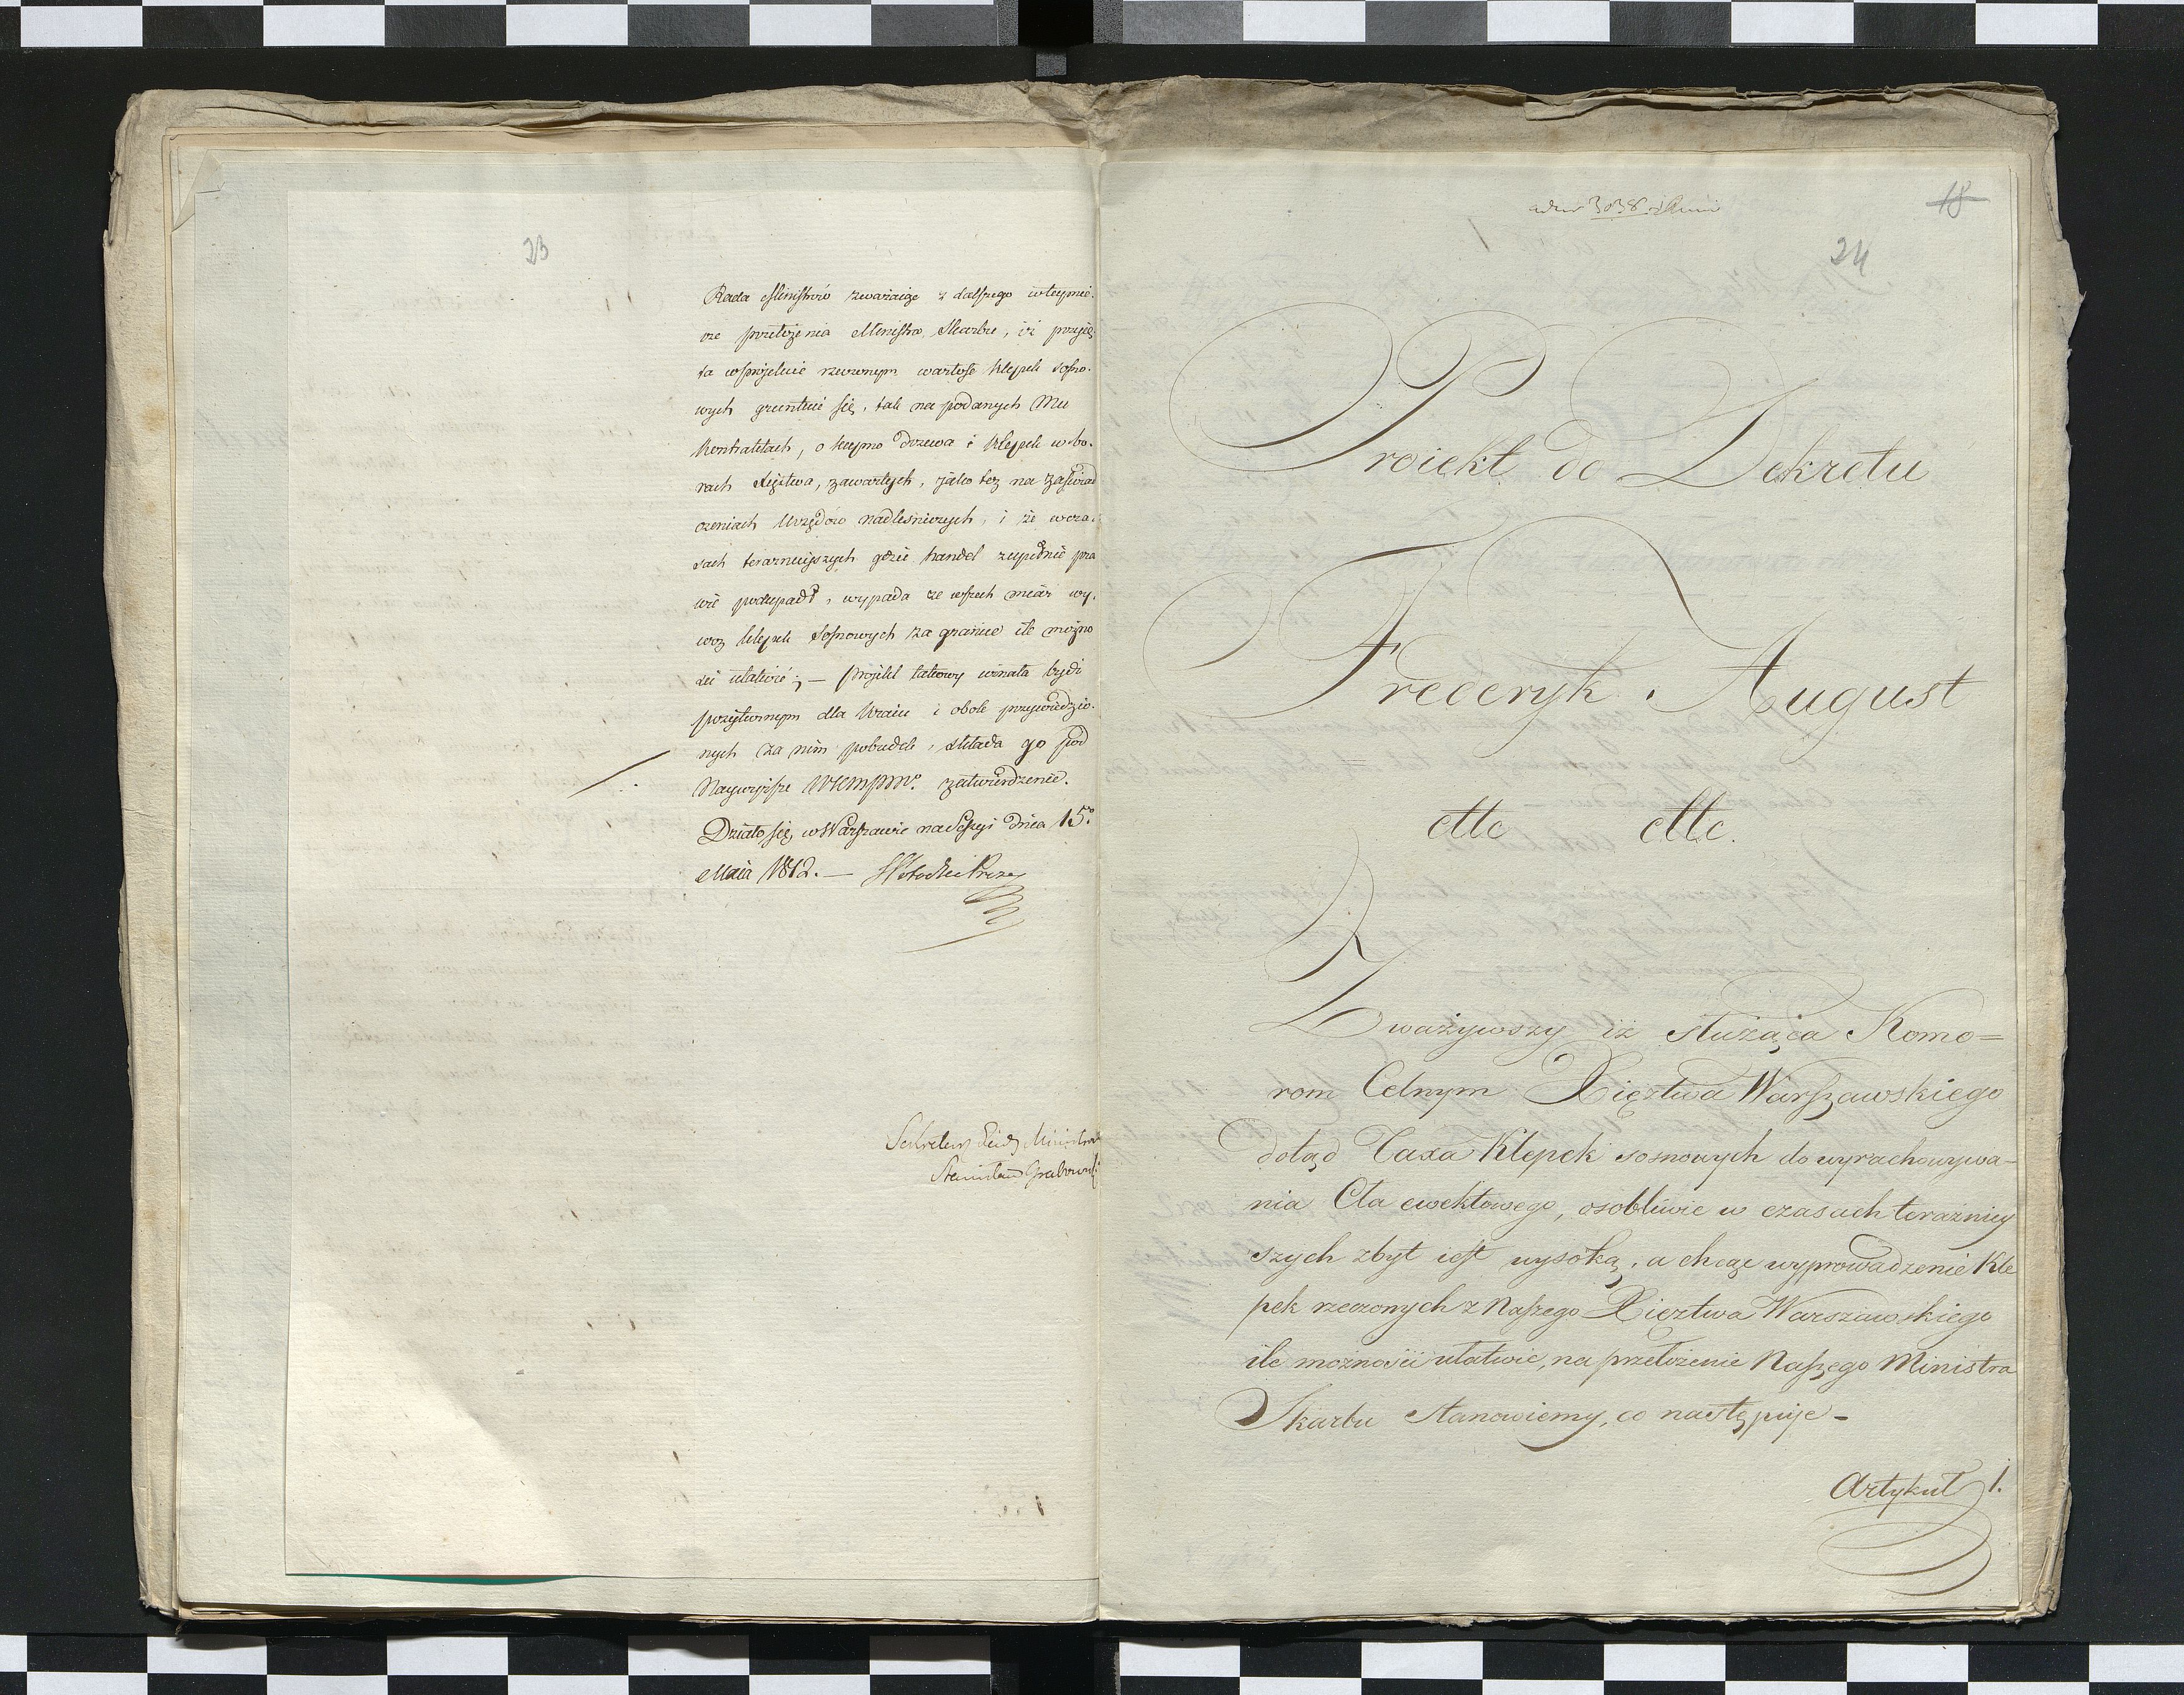 23
Rada Ministrów zważaiąc z dalszego wteymie.
rze przełożenia Ministra Skarbu, iż przyię
ta wproiekcie rzeczonym wartość klepek sosno.
wych gruntuie się, tak na podanych Mu
kontraktach, o kupno drzewa i klepek w bo.
rach Xięztwa, zawartych, jako też na zaświad
czeniach Urzędów nadleśniczych, i że wcza.
sach teraznieyszych gdzie handel zupełnie pra
wie podupadł, wypada ze wszech miar wy.
woz klepek sosnowych za granice ile możno
ści ułatwić; — proiekt takowy uznała bydź
pożytecznym dla kraiu i obok przywiedzio.
nych za nim pobudek, składa go pod
Naywyższe WKMPMc. zatwierdzenie.
Działo się w Warszawie na Sessyi dnia 15.
Maia 1812. — Potocki Prezes
Sekretarz Rady Ministrów
Stanisław Grabowski
18
3038
24
Proiekt do Dekretu
Frederyk August
ettc ettc.
Zważywszy iż służąca Komo=
rom Celnym Xięztwa Warszawskiego
dotąd Taxa Klepek sosnowych do wyrachowywa-
nia Cła ewektowego, osobliwie w czasach terazniey
szych zbyt iest wysoką, a chcąc wyprowadzenie Kle
pek rzeczonych z Naszego Xięztwa Warszawskiego
ile możności ułatwić, na przełożenie Naszego Ministra
Skarbu stanowiemy, co następuje-
Artykuł 1.